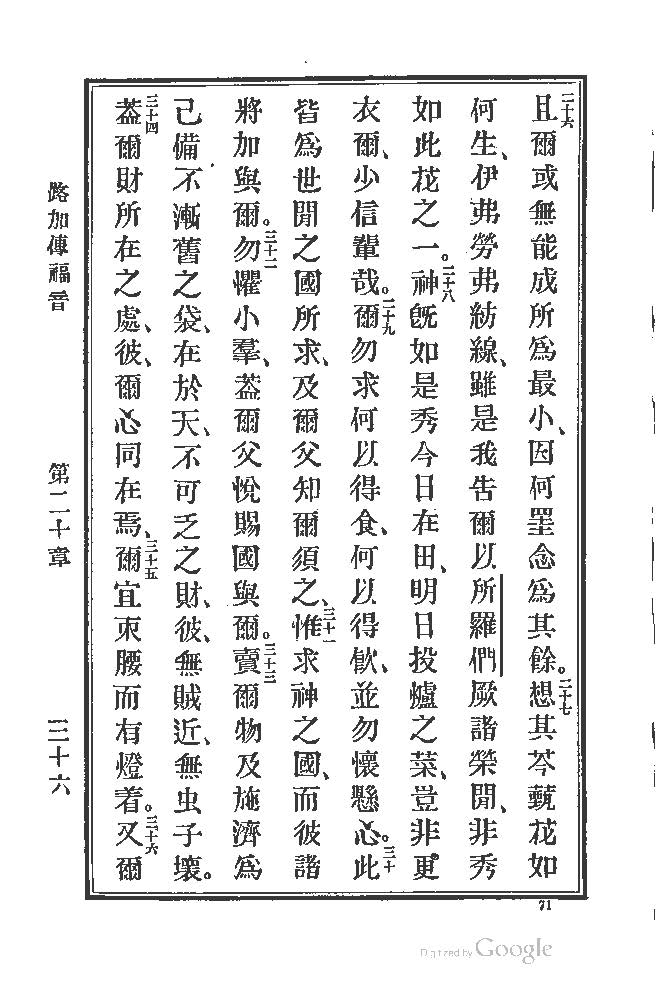 二十六且爾或無能成所為最小、因何罣念為其餘。二十七想其芩蓺花如
何生、伊弗勞弗紡線、雖是我告爾以所羅們厥諸榮間、非秀
如此花之一。二十八神旣如是秀今日在田、明日投爐之菜、豈非更
衣爾、少信輩哉。二十九爾勿求何以得食、何以得飲、並勿懷懸心。三十此
皆為世間之國所求、及爾父知爾須之、三十一惟求神之國、而彼諸
將加與爾。三十二勿懼小羣、葢爾父悅賜國與爾。三十三賣爾物及施濟為
己備不漸舊之袋、在於天、不可乏之財、彼、無賊近、無虫子壞。
三十四葢爾財所在之處、彼、爾心同在焉、三十五爾宜束腰而有燈着。三十六又爾
路加傳福音 第二十章 三十六
71
Digitized by Google